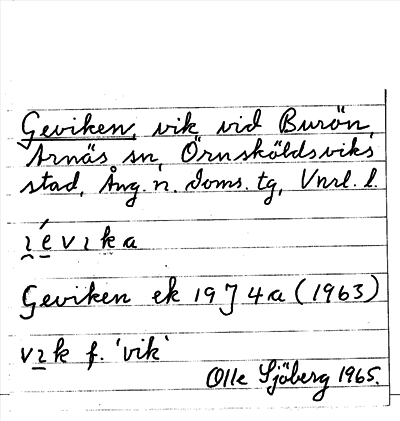 Geviken, vik vid Burön,
Arnäs sn, Örnsköldsviks
stad, Ång. n. doms. tg, Vnrl. l.
ɪ̯é̠vɪka
Geviken ek 19J4a (1963)
vɪ̠k f. 'vik'
Olle Sjöberg 1965.